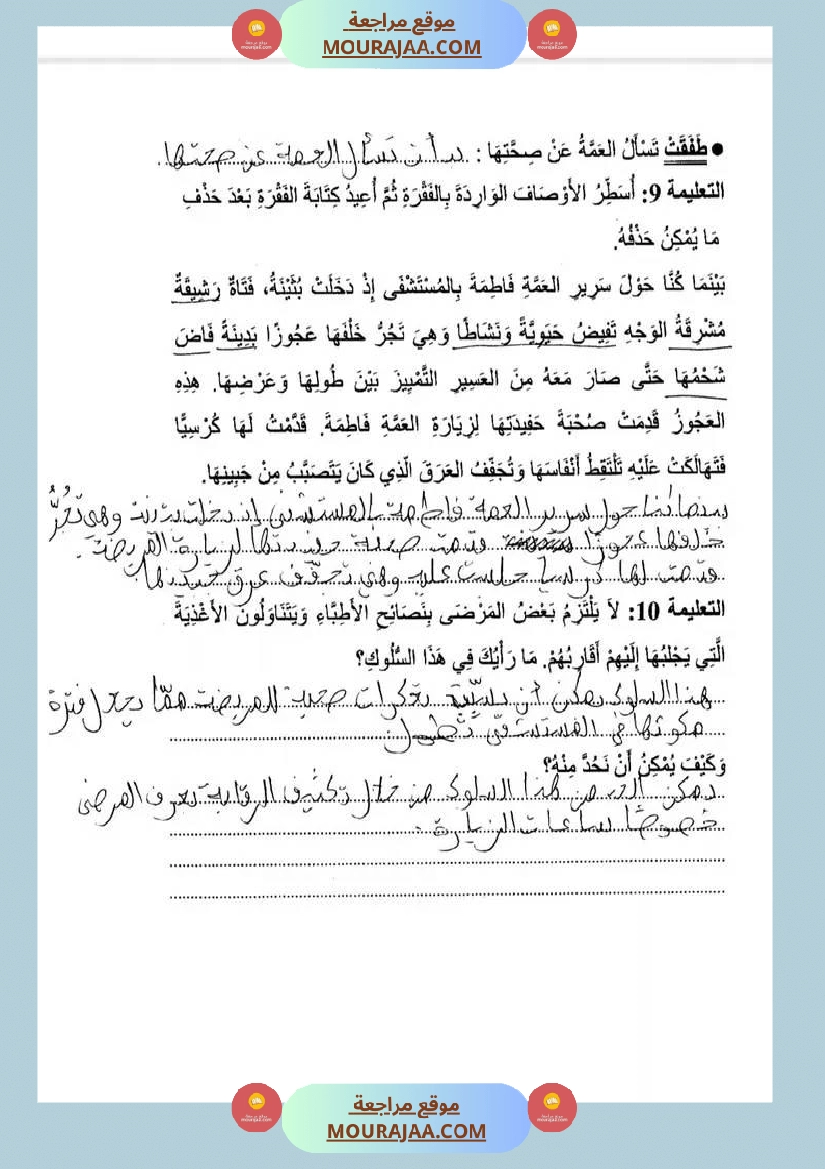 موقع مراجعة
MOURAJAA.COM
● طَفَقَتْ تَسْأَلُ العَمَّةُ عَنْ صِحَّتِهَا : بدأت تسأل العمة عن صحتها
التعليمة 9: أُسَطِّرُ الأَوْصَافَ الوَارِدَةَ بِالفَقْرَةِ ثُمَّ أُعِيدُ كِتَابَةَ الفَقْرَةِ بَعْدَ حَذْفِ
مَا يُمْكِنُ حَذْفُهُ.
بَيْنَمَا كُنَّا حَوْلَ سَرِيرِ العَمَّةِ فَاطِمَةَ بِالمُسْتَشْفَى إِذْ دَخَلَتْ بُثَيْنَةُ، فَتَاةٌ رَشِيقَةٌ
مُشْرِقَةُ الوَجْهِ تَفِيضُ حَيَوِيَّةً وَنَشَاطًا وَهِيَ تَجُرُّ خَلْفَهَا عَجُوزًا بَدِينَةً فَاضَ
شَحْمُهَا حَتَّى صَارَ مَعَهُ مِنَ العَسِيرِ التَّمْيِيزَ بَيْنَ طُولِهَا وَعَرْضِهَا. هَذِهِ
العَجُوزُ قَدِمَتْ صُحْبَةَ حَفِيدَتِهَا لِزِيَارَةِ العَمَّةِ فَاطِمَةَ. قَدَّمْتُ لَهَا كُرْسِيًّا
فَتَهَالَكَتْ عَلَيْهِ تَلْتَقِطُ أَنْفَاسَهَا وَتُجَفِّفُ العَرَقَ الَّذِي كَانَ يَتَصَبَّبُ مِنْ جَبِينِهَا.
بينما كنا حول سرير العمة فاطمة بالمستشفى إذ دخلت بثينة وهي تجُرُّ
خلفها عجوزا قدمت صحبة حفيدتها لزيارة المريضة.
قدمت لها كرسيا جلست عليه وهي تجفّف عرق جبينها.
التعليمة 10: لاَ يَلْتَزِمُ بَعْضُ المَرْضَى بِنَصَائِحِ الأَطِبَّاءِ وَيَتَنَاوَلُونَ الأَغْذِيَةَ
الَّتِي يَجْلِبُهَا إِلَيْهِمْ أَقَارِبُهُمْ. مَا رَأْيُكَ فِي هَذَا السُّلُوكِ؟
هذا السلوك يمكن أن يسبّب تعكرات صحية للمريض ممّا يجعل فترة
مكوثها في المستشفى تطول
وَكَيْفَ يُمْكِنُ أَنْ نَحُدَّ مِنْهُ؟
يمكن الحد من هذا السلوك من خلال تكثيف الرقابة بغرف المرضى
خصوصًا ساعات الزيارة.
موقع مراجعة
MOURAJAA.COM